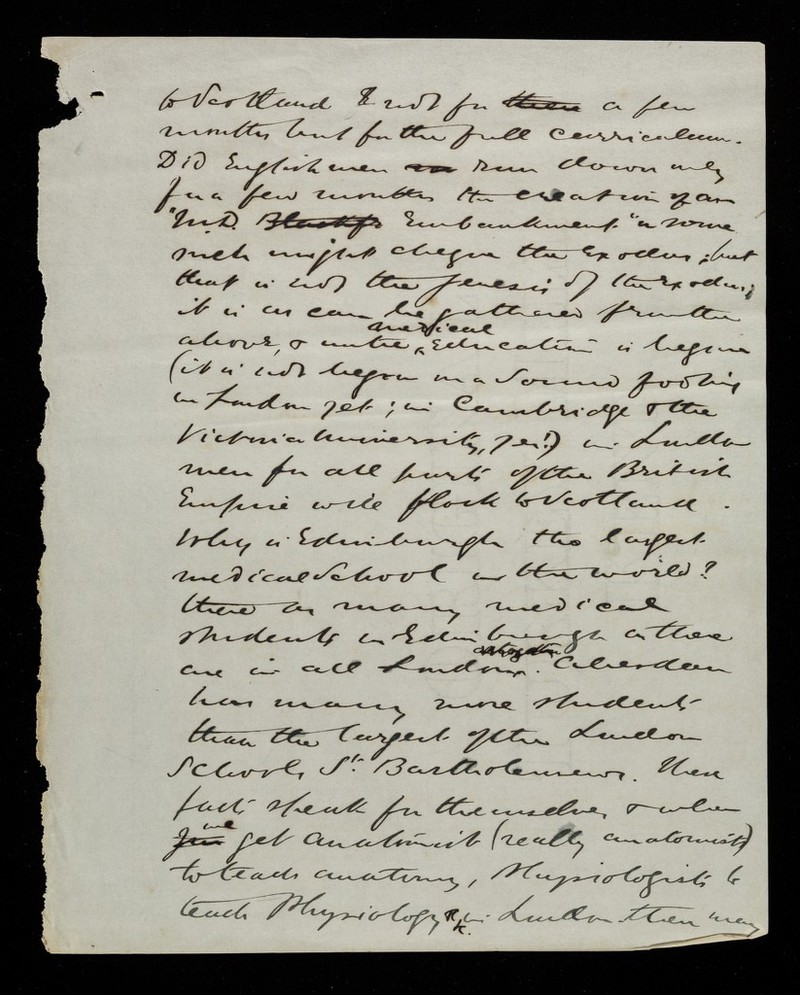 to Scotland & not for there a few
months but for the full curriculum.
Did Englishmen run down only
for a few months the creation of an
"M.D. Embankment" in some
such might check the Exodus; but
that is not the genesis of the Exodus;
it is as can be gathered from the
above, & until medical Education is begun
(it is not begun on a sound footing
in London yet; in Cambridge & the
Victoria University, yes!) in London
men from all parts of the British
Empire will flock to Scotland.
Why is Edinburgh the largest
medical School in the world?
there are many medical
students in Edinburgh as there
are in all London altogether. Aberdeen
has many more students
than the largest of the London
Schools St. Bartholomews. These
facts speak for themselves & when
we get anatomists (really anatomists)
to teach anatomy, Physiologists to
teach Physiology &c. in London then many